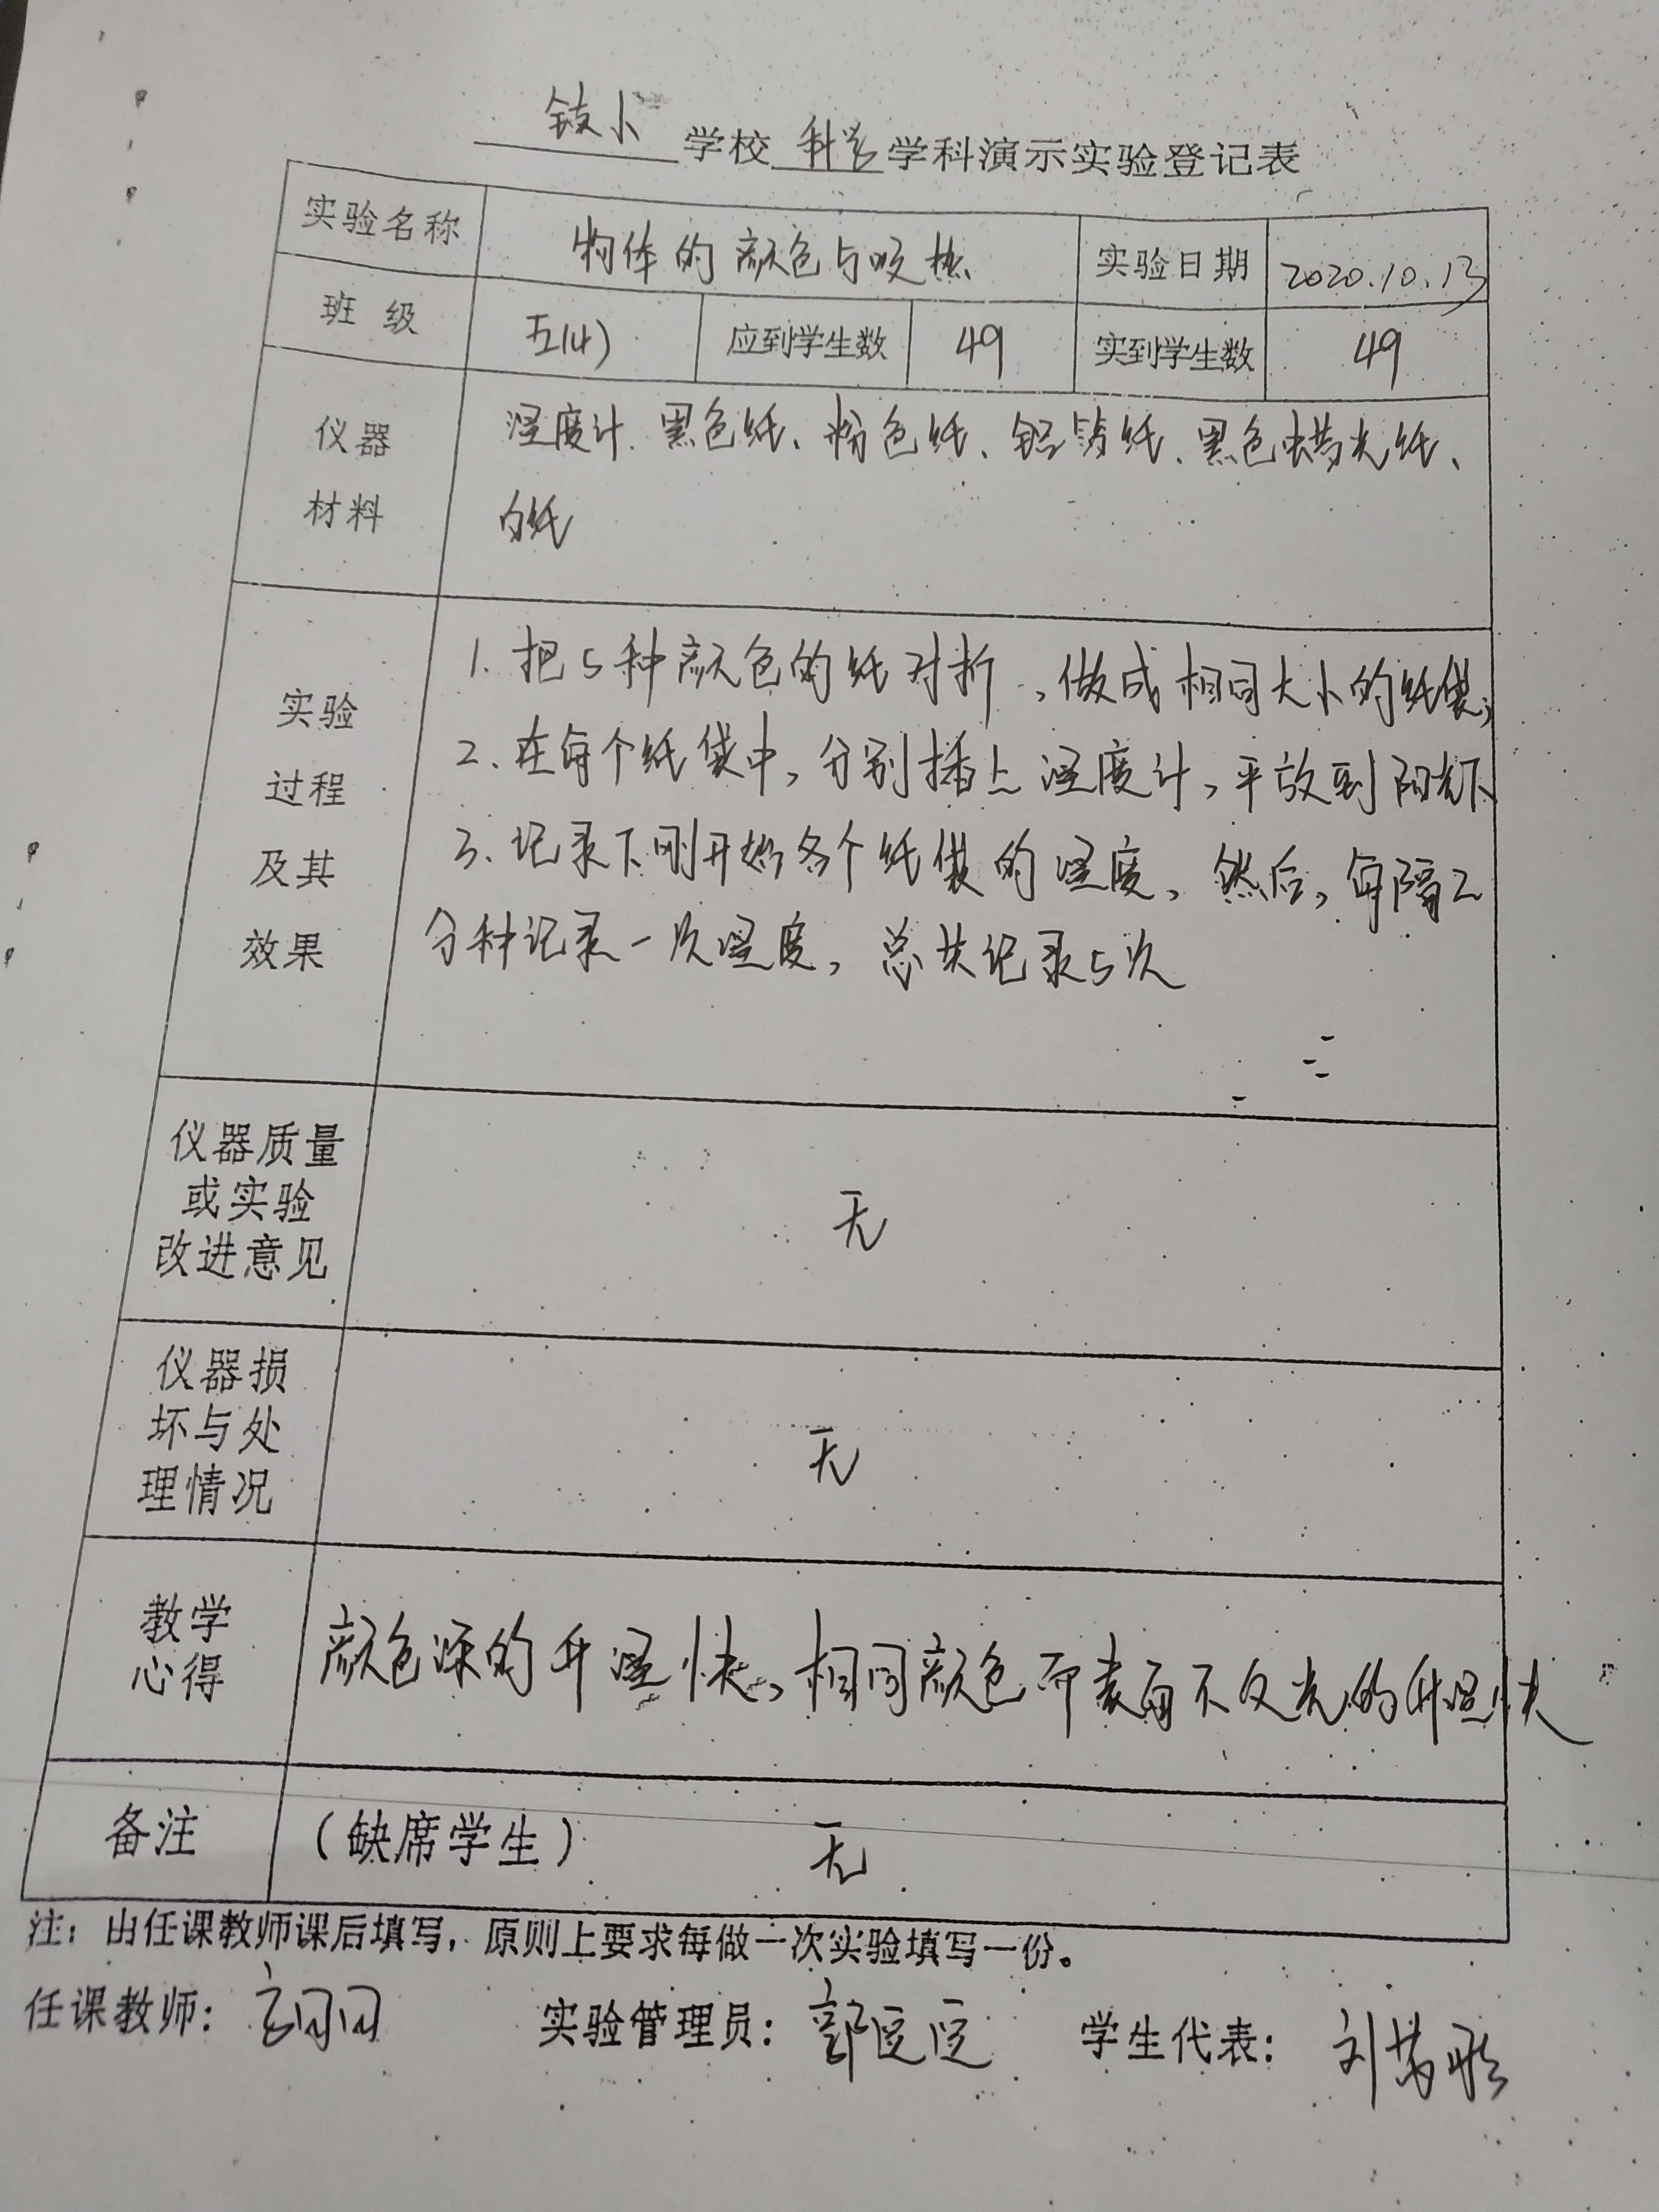 学校 科学 学科演示实验登记表
实验名称 物体的颜色与吸热 实验日期 2020.10.13
班 级 五(4) 应到学生数 49 实到学生数 49
仪器 温度计、黑色纸、粉色纸、铝箔纸、黑色蜡光纸、
材料 白纸
实验 1. 把5种颜色的纸对折,做成相同大小的纸袋;
过程 2、在每个纸袋中,分别插上温度计,平放到阳光下
及其 3、记录下刚开始各个纸袋的温度,然后,每隔2
效果 分种记录一次温度,总共记录5次
仪器质量
或实验 无
改进意见
仪器损
坏与处 无
理情况
教学
心得 颜色深的升温快,相同颜色而表面不反光的升温快
备注 (缺席学生) 无
注:由任课教师课后填写,原则上要求每做一次实验填写一份。
任课教师: 实验管理员: 学生代表: